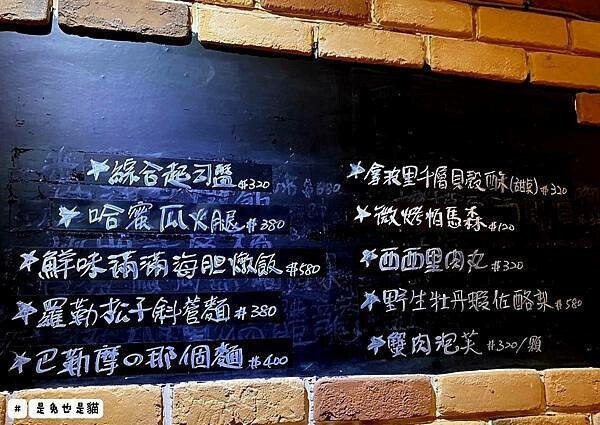 ★綜合起司盤 #320
★哈蜜瓜火腿 #380
★鮮味滿滿海胆燉飯 #580
★羅勒松子斜管麵 #380
★巴勒摩の那個麵 #400
★拿波里千層貝殼酥(甜点) #320
★微烤帕馬森 #120
★西西里肉丸 #320
★野生牡丹蝦佐酪梨 #580
★蟹肉泡芙 #320/顆
# 是兔也是貓